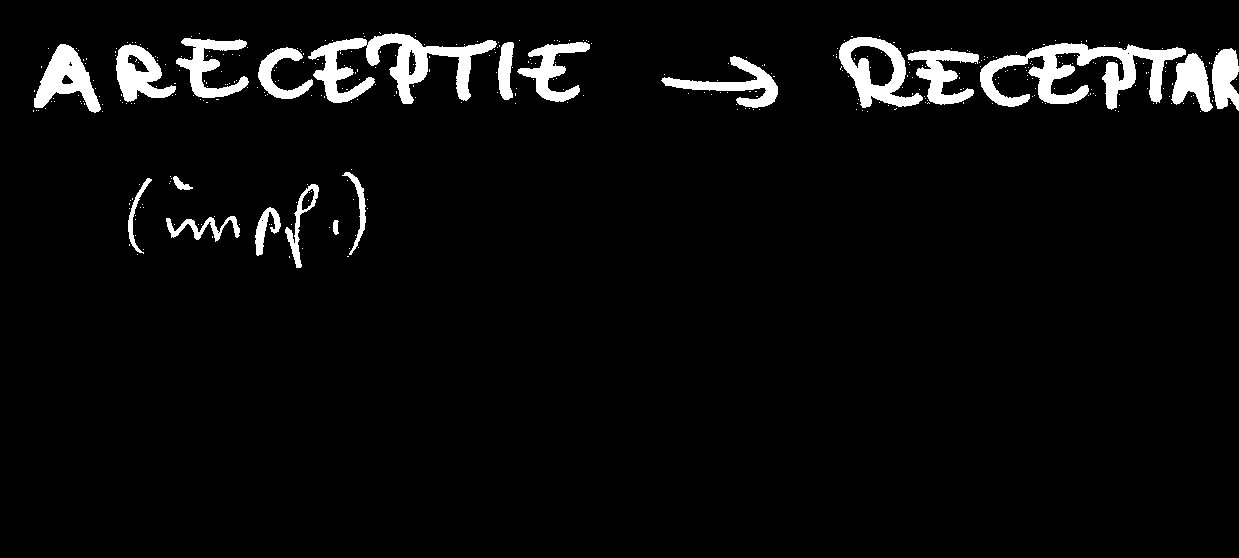 ARECEPTIE → RECEPTAR
(impf.)